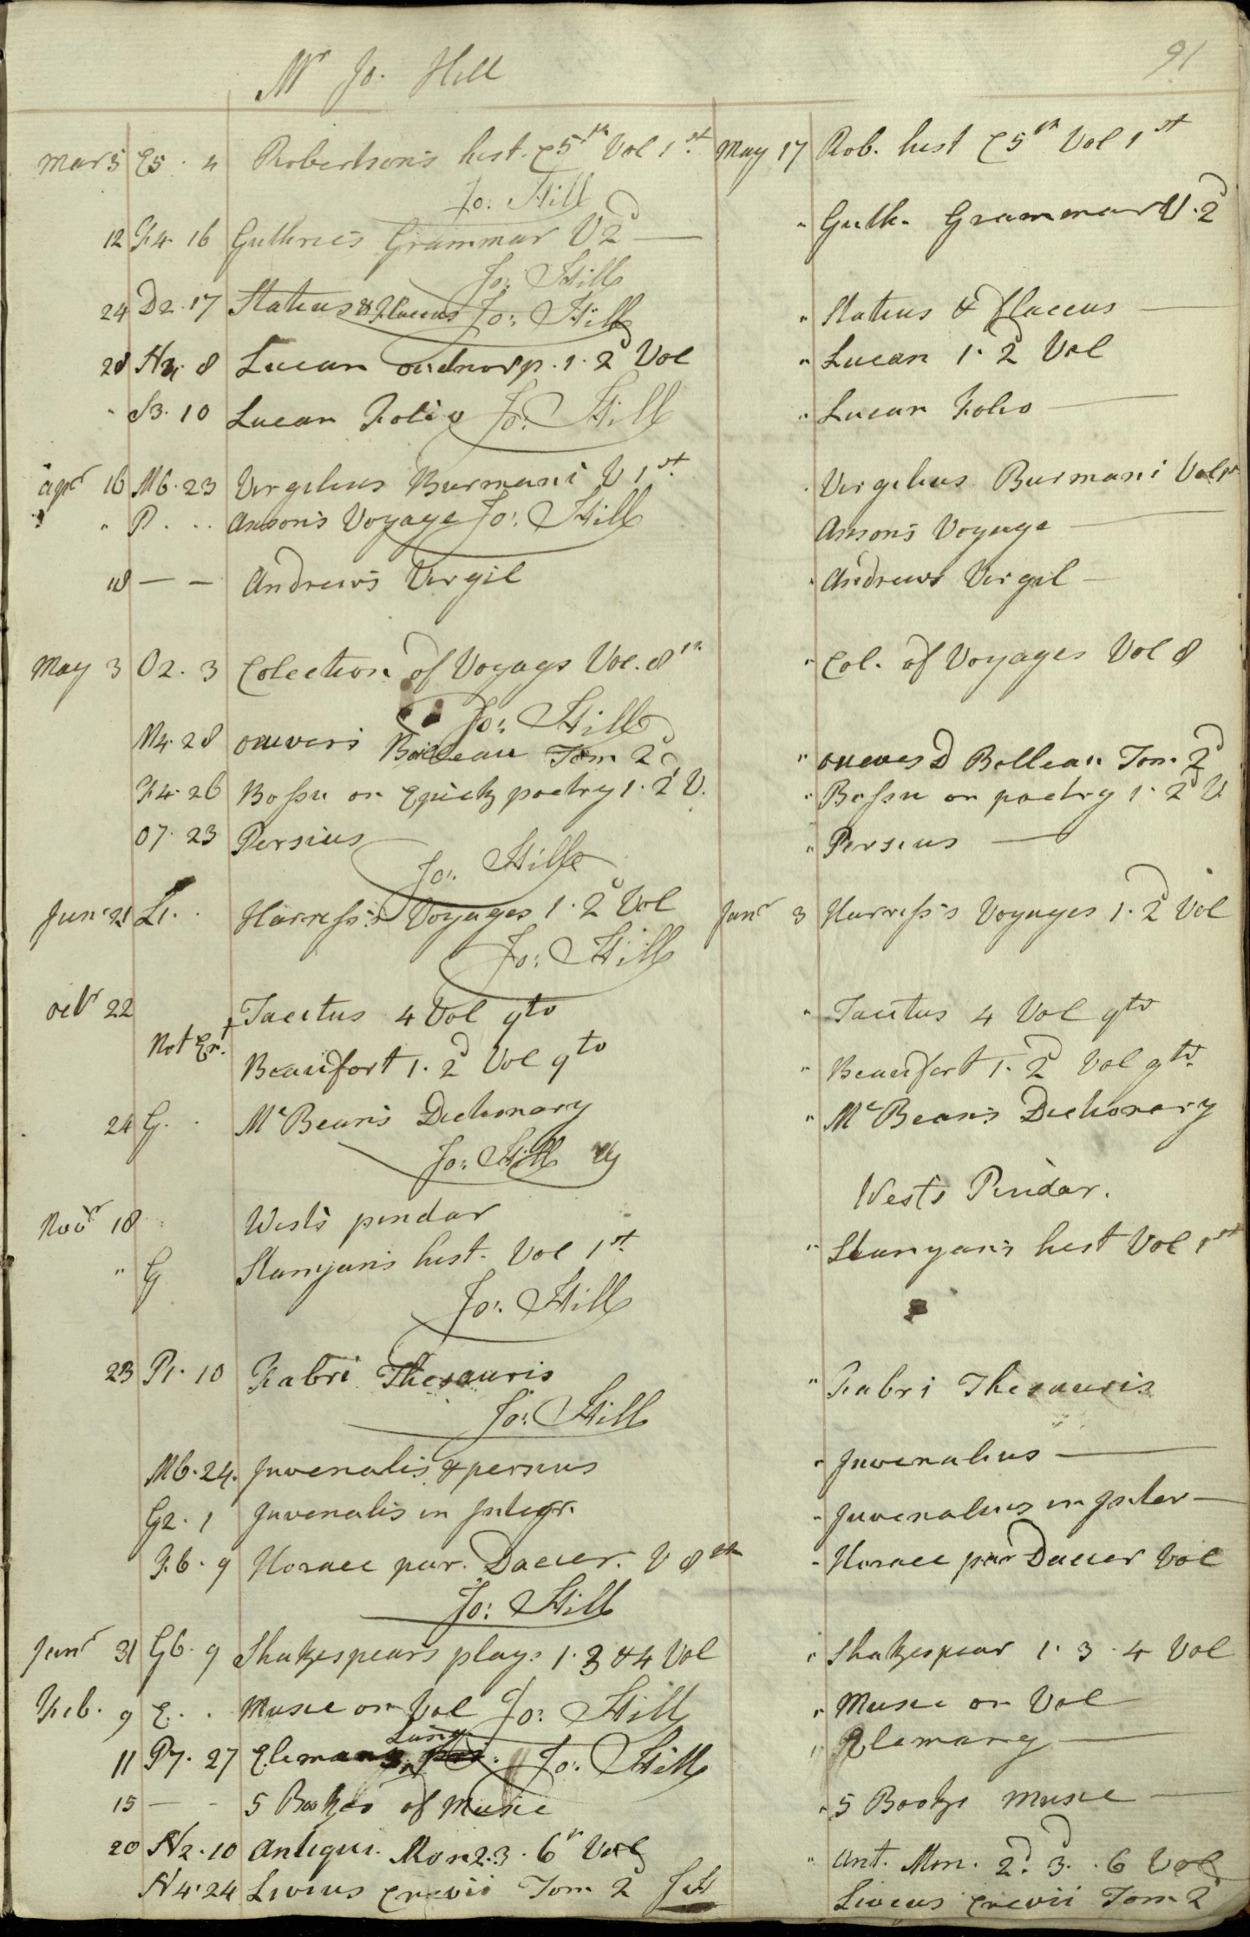 Mr Jo. Hill
91
Mar 5 E5. 4 Robertson's hist. C5th Vol 1st. May 17 Rob. hist C5th Vol 1st
Jo: Hill
12 F4. 16 Guthrie's Grammar V 2d " Guth. Grammar V. 2d
Jo: Hill
24 D2. 17 Statius & Flaccus Jo: Hill " Statius & Flaccus
28 8 Lucan 1. 2d Vol " Lucan 1. 2d Vol
" S3. 10 Lucan Folio Jo: Hill " Lucan Folio
apr 16 M6. 23 Virgilius Burmani V 1st. Virgilius Burmani Vol 1st
" P. .. Anson's Voyage Jo: Hill Anson's Voyage
18 — — Andrews Virgil " Andrews Virgil
May 3 O2. 3 Colection of Voyags Vol. 8th " Col. of Voyages Vol 8
Jo: Hill
M4. 28 Boileau Tom 2d " D Bolleau Tom 2d
F4. 26 Bossu on Epick poetry 1. 2d V. " Bossu on poetry 1. 2d V
O7. 23 Persius " Persius
Jo: Hill
Jun. 21 L1. . Harress's Voyages 1. 2d Vol Janr 3 Harress's Voyages 1. 2d Vol
Jo: Hill
octr 22 Tacitus 4 Vol qto " Tacitus 4 Vol qto
Not Ert.
Beaufort 1. 2d Vol qto " Beaufort 1. 2d Vol qto.
24 G. . McBean's Dictionary " McBean's Dictionary
Jo: Hill
Novr 18 West's pindar West's Pindar.
" G Stanyan's hist. Vol 1st. " Stanyan's hist Vol 1st
Jo: Hill
23 P1. 10 Fabri Thesauris " Fabri Thesauris
Jo: Hill
M6. 24. Juvenalis & persius " Juvenalius
G2. 1 Juvenalis in Integr. " Juvenalius in Inter
F6. 9 Horace par. Dacier. V 8th " Horace par Dacier Vol
Jo: Hill
Janr 31 G6. 9 Shakespears plays 1. 3 & 4 Vol " Shakespear 1. 3. 4 Vol
Feb. 9 E. . Music on Vol Jo: Hill " Music on Vol
11 P7. 27 Jo: Hill " Elemany
15 — - 5 Books of Music " 5 Books Music
20 N2. 10 Antiqui. Mon 2. 3. 6th Vol " Ant. Mon. 2d. 3d. 6 Vol
N4. 24 Livius Crevii Tom 2 JH Livius Crevii Tom 2